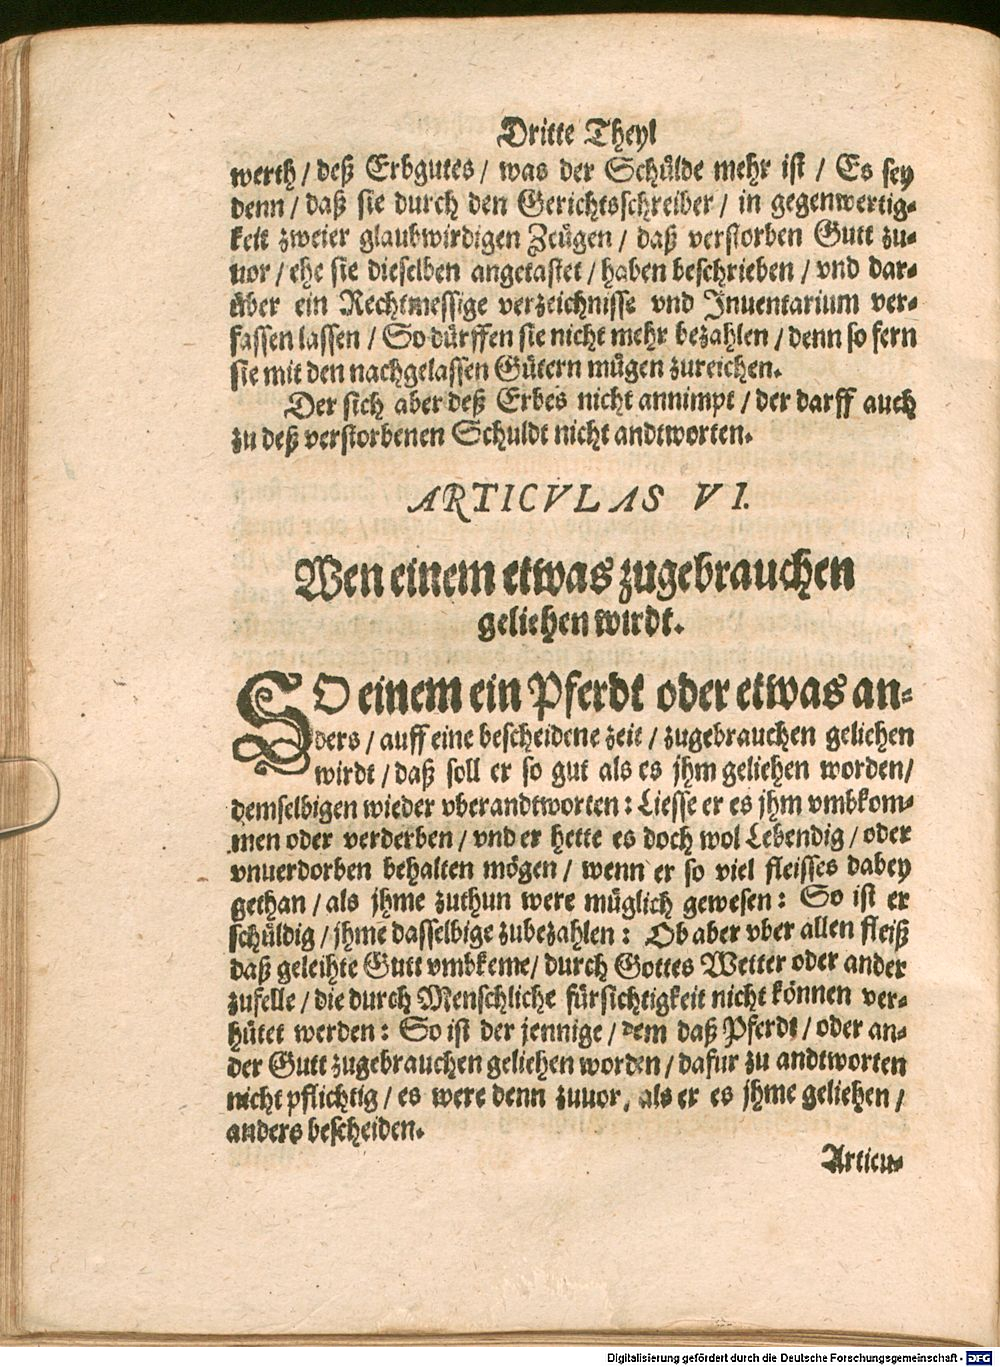 Dritte Theyl
werth / deß Erbgutes / was der Schülde mehr ist / Es sey
denn / daß sie durch den Gerichtsschreiber / in gegenwertig-
keit zweier glaubwirdigen Zeügen / daß verstorben Gutt zu-
uor / ehe sie dieselben angetastet / haben beschrieben / vnd dar-
über ein Rechtmessige verzeichnisse vnd Inuentarium ver-
fassen lassen / So dürffen sie nicht mehr bezahlen / denn so fern
sie mit den nachgelassen Gütern mügen zureichen.
Der sich aber deß Erbes nicht annimpt / der darff auch
zu deß verstorbenen Schuldt nicht andtworten.
ARTICVLAS VI.
Wen einem etwas zugebrauchen
geliehen wirdt.
SO einem ein Pferdt oder etwas an-
ders / auff eine bescheidene zeit / zugebrauchen geliehen
wirdt / daß soll er so gut als es jhm geliehen worden /
demselbigen wieder vberandtworten: Liesse er es jhm vmbkom-
men oder verderben / vnd er hette es doch wol Lebendig / oder
vnuerdorben behalten mögen / wenn er so viel fleisses dabey
gethan / als jhme zuthun were müglich gewesen: So ist er
schüldig / jhme dasselbige zubezahlen: Ob aber vber allen fleiß
daß geleihte Gutt vmbkeme / durch Gottes Wetter oder ander
zufelle / die durch Menschliche fürsichtigkeit nicht können ver-
hütet werden: So ist der jennige / dem daß Pferdt / oder an-
der Gutt zugebrauchen geliehen worden / dafur zu andtworten
nicht pflichtig / es were denn zuuor, als er es jhme geliehen /
anders bescheiden.
Articu-
Digitalisierung gefördert durch die Deutsche Forschungsgemeinschaft - DFG